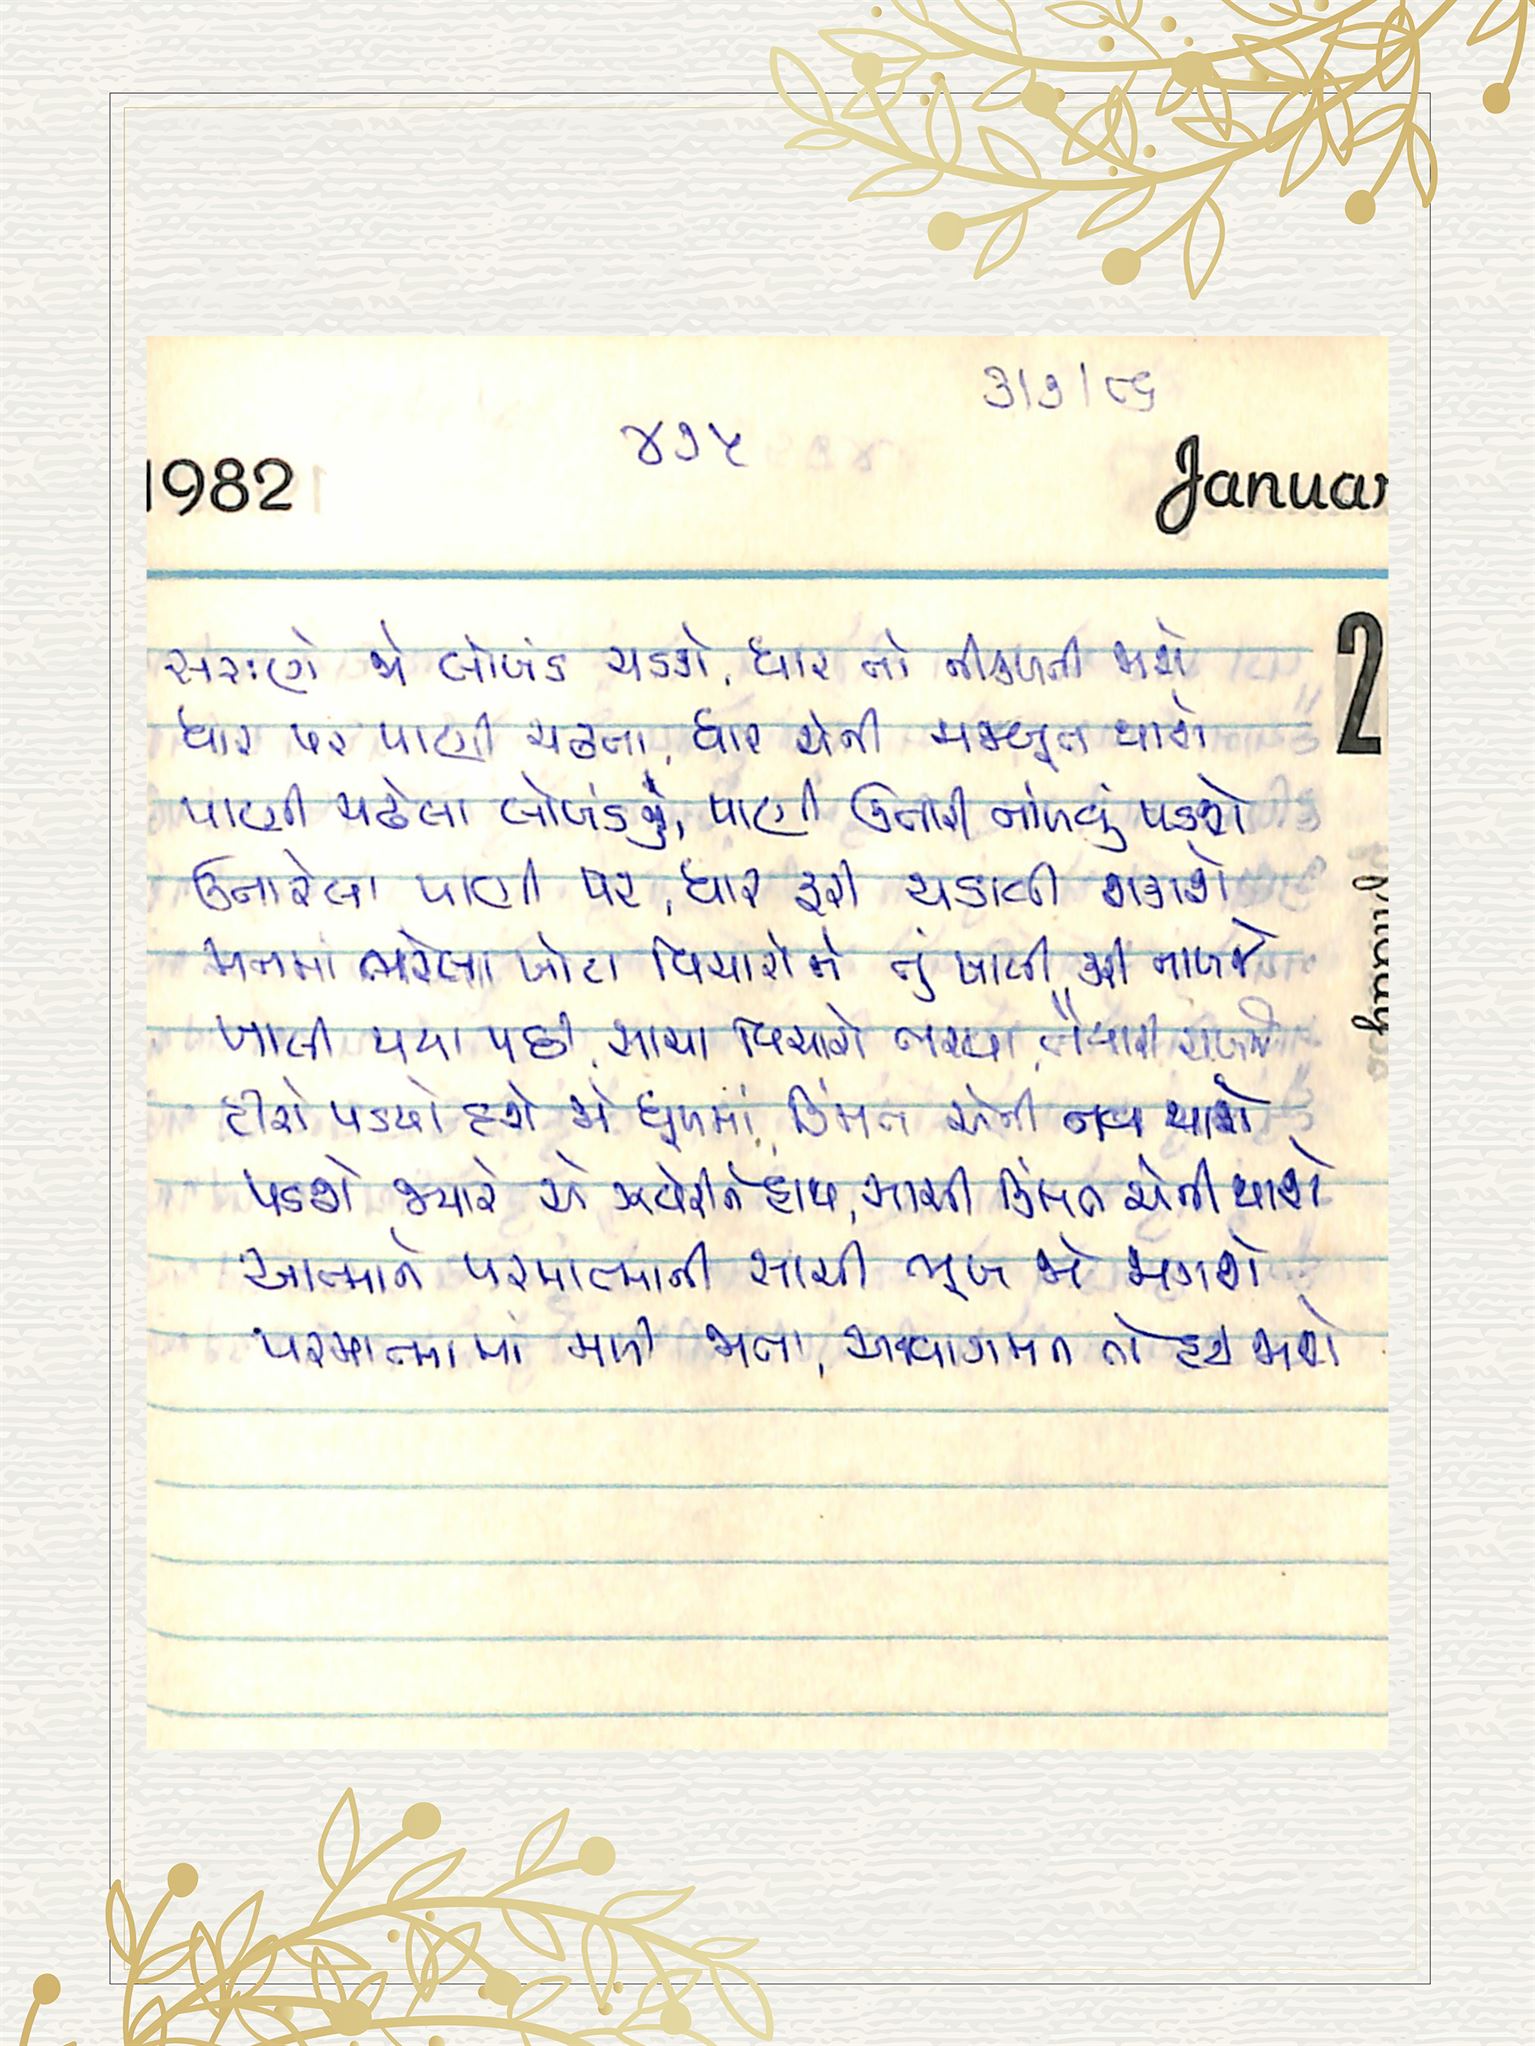 ૩/૭/૮૬
૪૭૫
1982
Januar
2
સરાણે જે લોખંડ ચડશે, ધાર તો નીકળતી જાશે
ધાર પર પાણી ચઢતા, ધાર એની મજબૂત થાશે
પાણી ચઢેલા લોખંડનું, પાણી ઉતારી નાંખવું પડશે
ઉતારેલા પાણી પર, ધાર ફરી ચડાવી શકાશે
મનમાં ભરેલા ખોટા વિચારોને તું ખાલી કરી નાખજે
ખાલી થયા પછી, સાચા વિચારો ભરવા તૈયારી રાખજે
હીરો પડ્યો હશે જે ધૂળમાં, કિંમત એની નવ થાશે
પડશે જ્યારે એ ઝવેરીને હાથ, સાચી કિંમત એની થાશે
આત્માને પરમાત્માની સાચી ભૂખ જો જાગશે
પરમાત્મામાં મળી જાતા, આવાગમન તો હટી જાશે